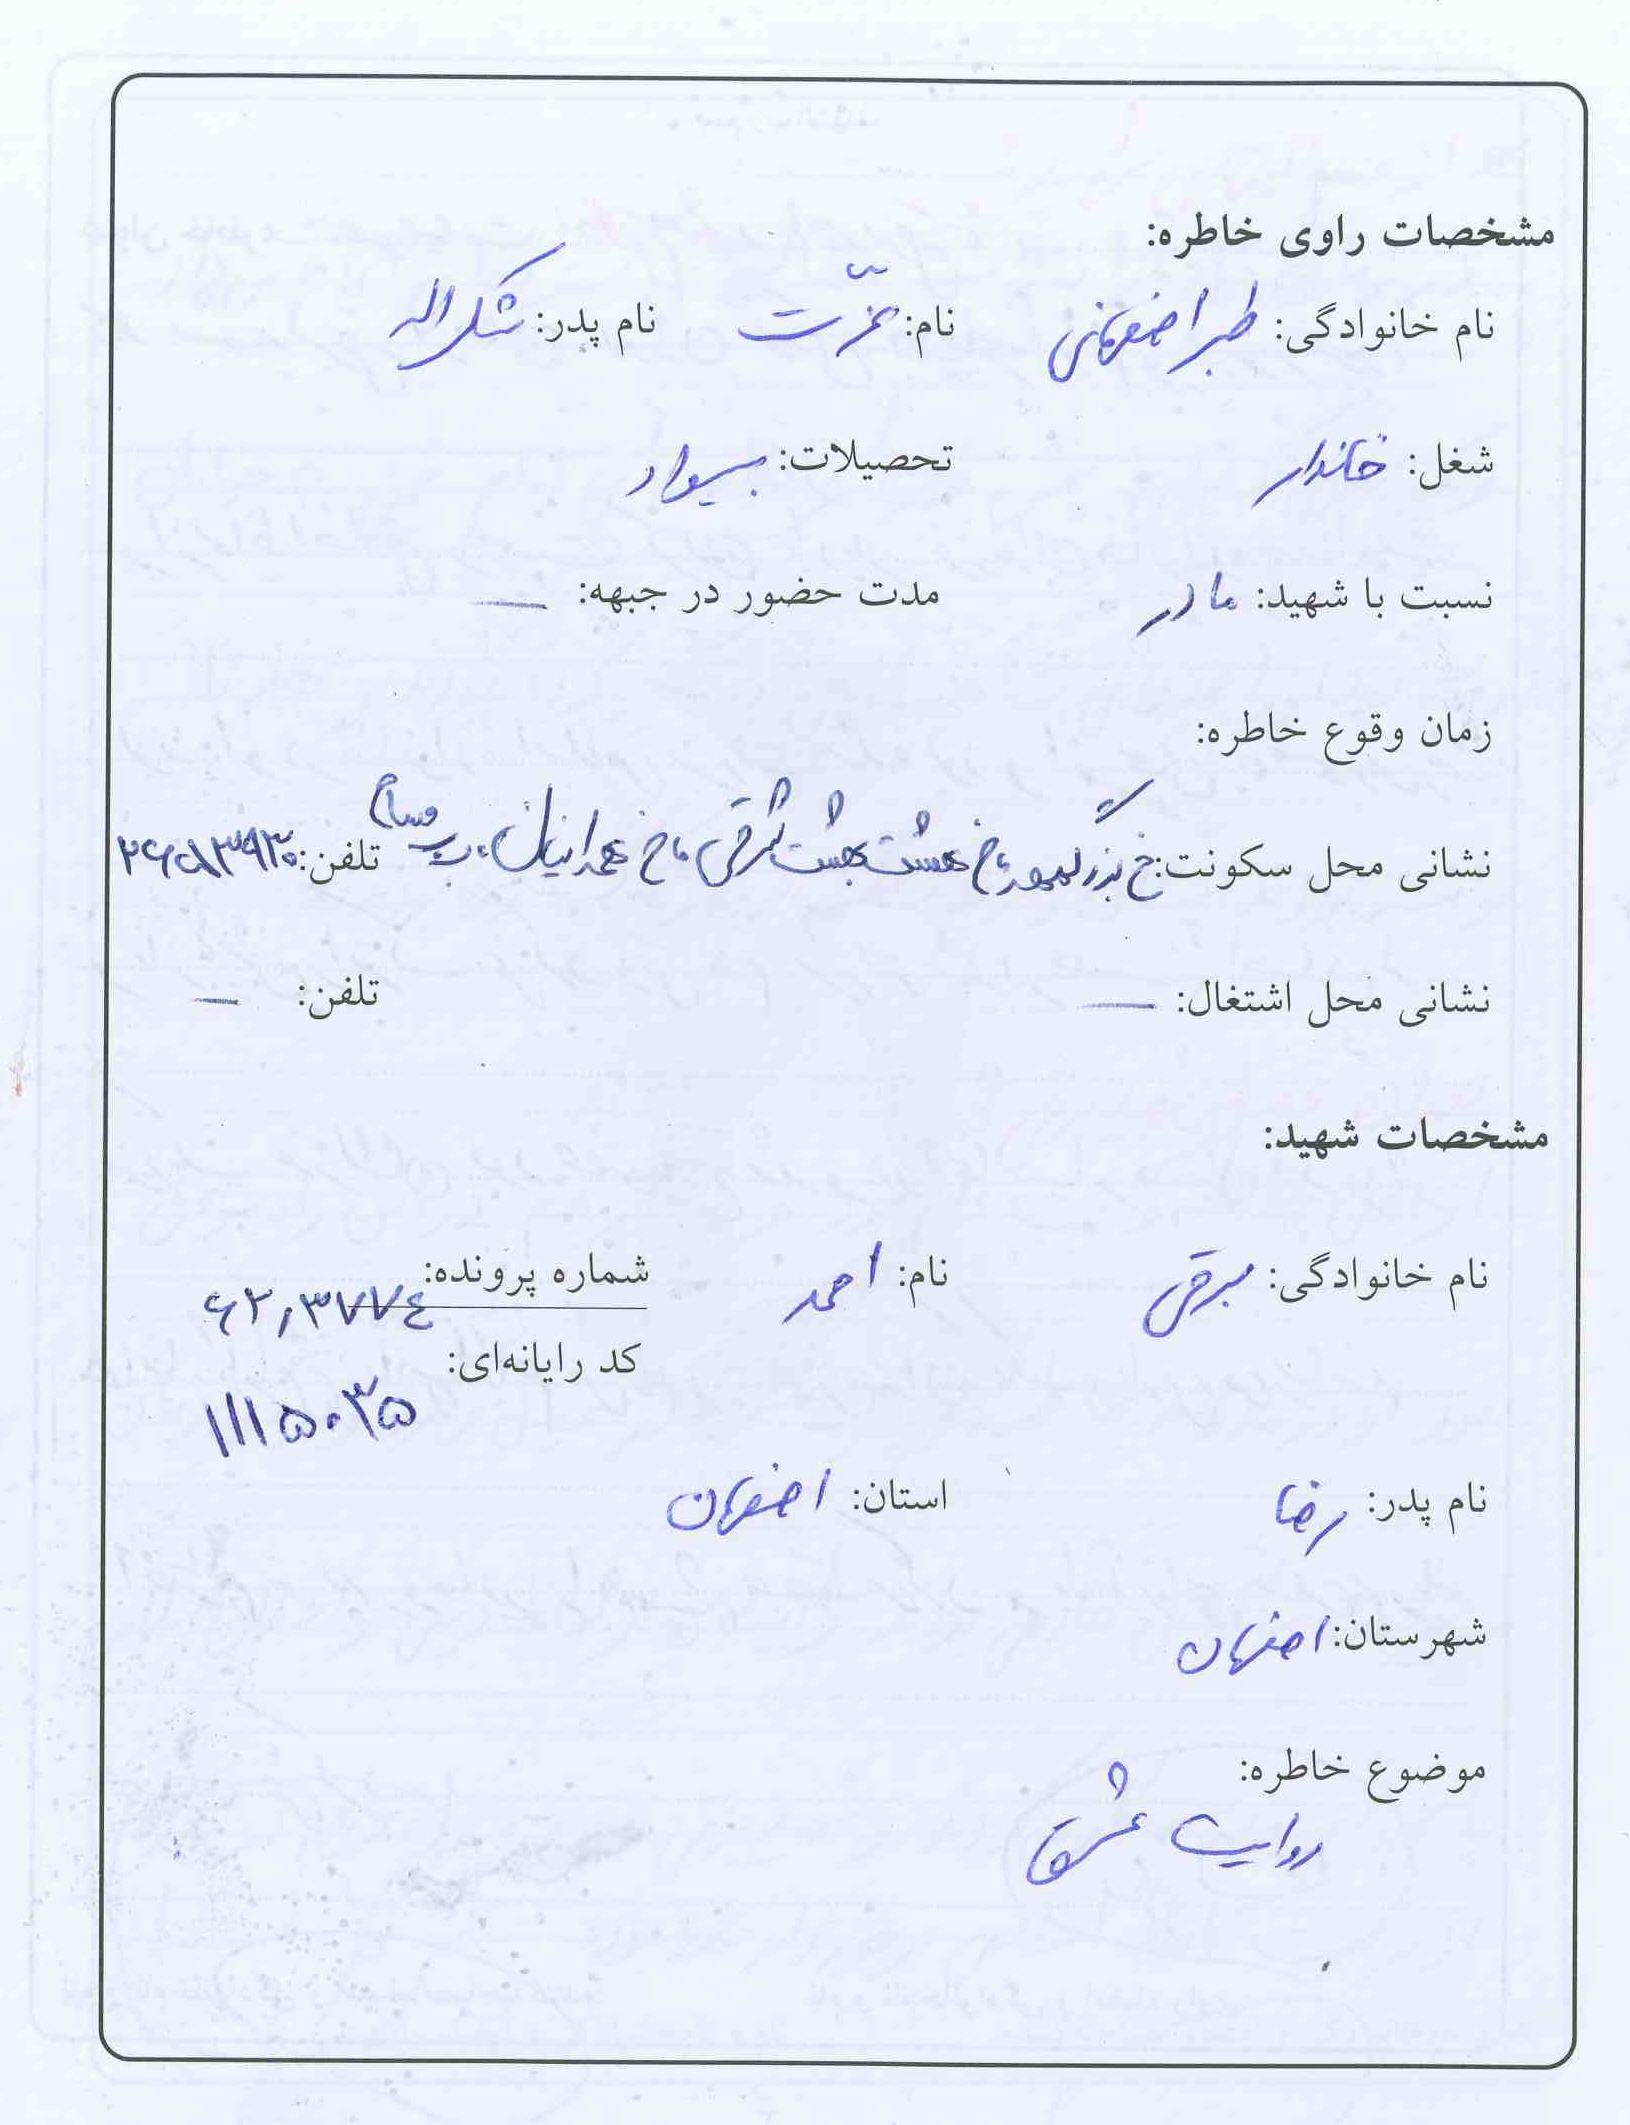 مشخصات راوی خاطره:
نام خانوادگی: طبر اصفهانی نام: عزّت نام پدر: شکراله
شغل: خانه‌دار تحصیلات: بیسواد
نسبت با شهید: مادر مدت حضور در جبهه: —
زمان وقوع خاطره:
نشانی محل سکونت: خ بزرگمهر، خ هشت بهشت شرقی، خ همدانیان، تلفن:
نشانی محل اشتغال: — تلفن: —
مشخصات شهید:
نام خانوادگی: مبرقی نام: احمد شماره پرونده: ۶۲,۳۷۷۴
کد رایانه‌ای: ۱۱۱۵۰۳۵
نام پدر: رضا استان: اصفهان
شهرستان: اصفهان
موضوع خاطره:
روایت عشق